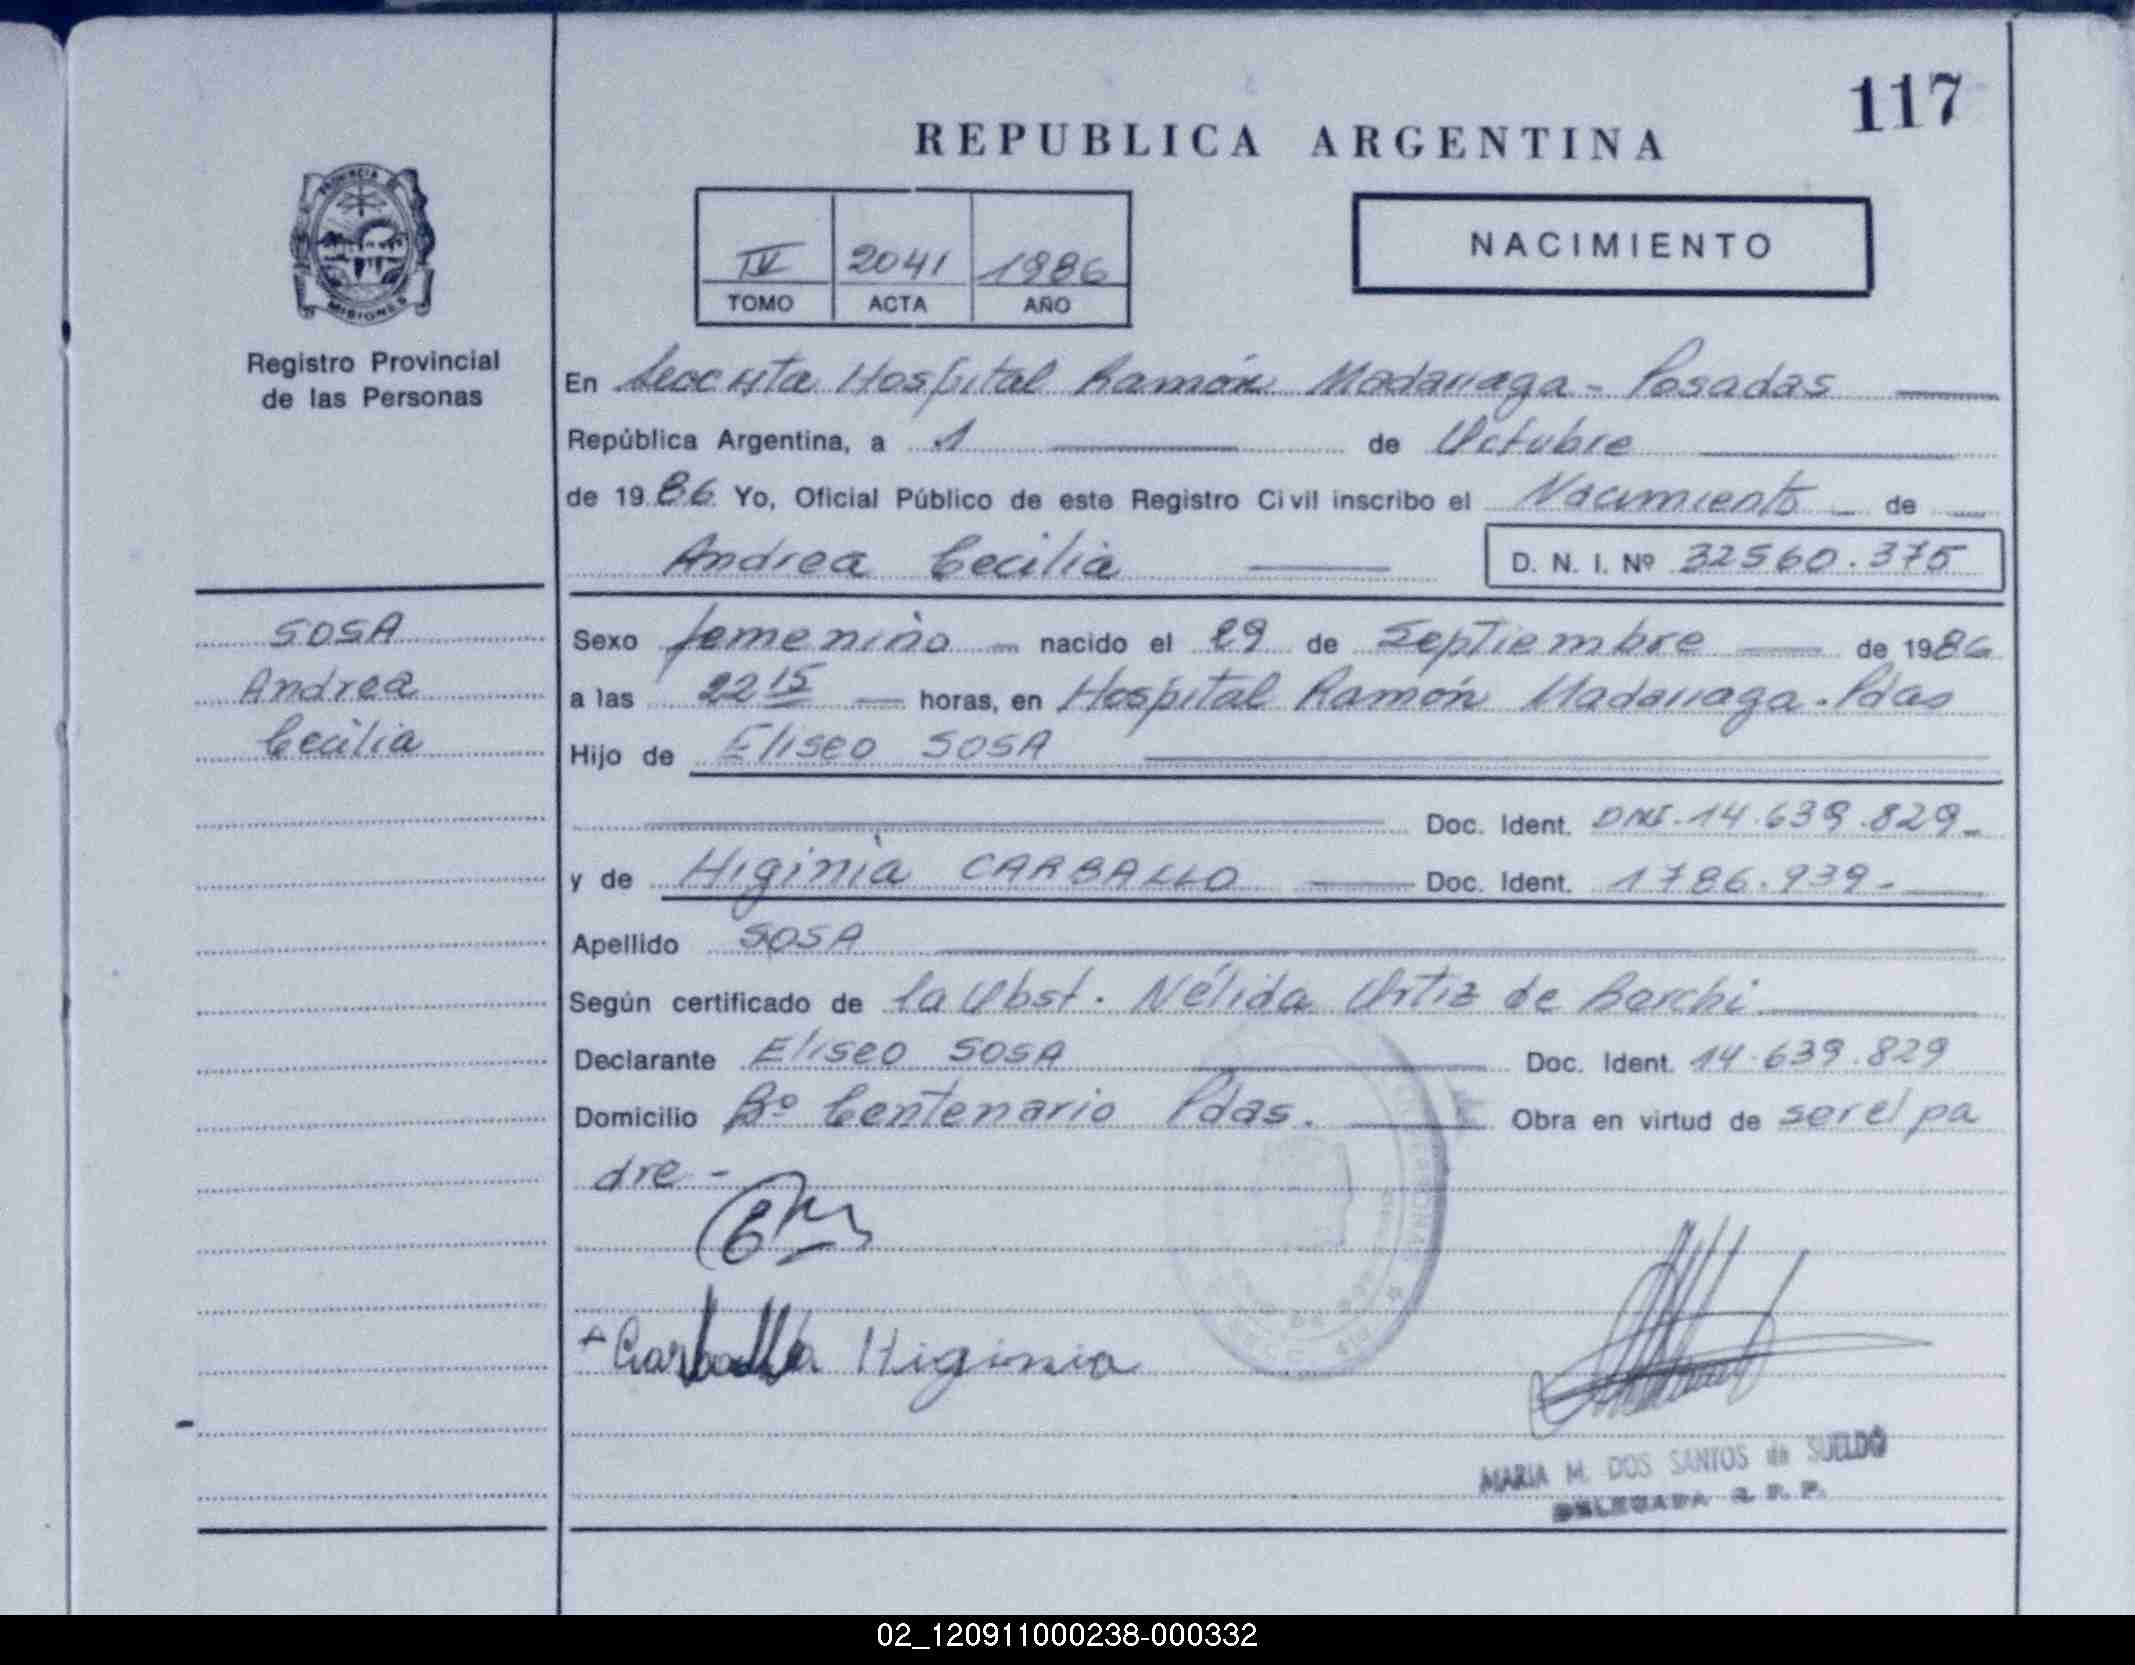 117
REPUBLICA ARGENTINA
PROVINCIA DE
MISIONES
Registro Provincial
de las Personas
IV 2041 1986
TOMO ACTA AÑO
NACIMIENTO
En Hospital Ramón Madariaga - Posadas
República Argentina, a 1 de Octubre
de 1986 Yo, Oficial Público de este Registro Civil inscribo el Nacimiento de
Andrea Cecilia
D. N. I. Nº 32560.375
SOSA
Andrea
Cecilia
Sexo femenino nacido el 29 de Septiembre de 1986
a las 22 15 horas, en Hospital Ramón Madariaga - Pdas
Hijo de Eliseo SOSA
Doc. Ident. DNI. 14.639.829
y de Higinia CARBALLO Doc. Ident. 1786.939
Apellido SOSA
Según certificado de la Obst. Nélida Ortiz de Barchi
Declarante Eliseo SOSA Doc. Ident. 14.639.829
Domicilio Bº Centenario Pdas. Obra en virtud de ser el pa
dre -
Higinia
MARIA M. DOS SANTOS de SUELDO
DELEGADA R. P. P.
02_120911000238-000332